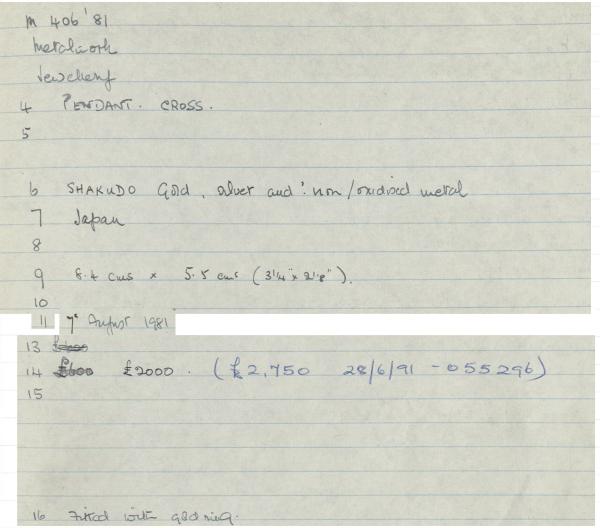 M 406 '81
Metalwork
Jewellery
4 PENDANT. CROSS.
5
6 SHAKUDO Gold, silver and iron/oxidised metal
7 Japan
8
9 8.4 cms × 5.5 cms (3¼" × 2⅛").
10
11 7th August 1981
13
14 £600 £2000. (£2,750 28/6/91 - 055296)
15
16 Fitted with gold ring.